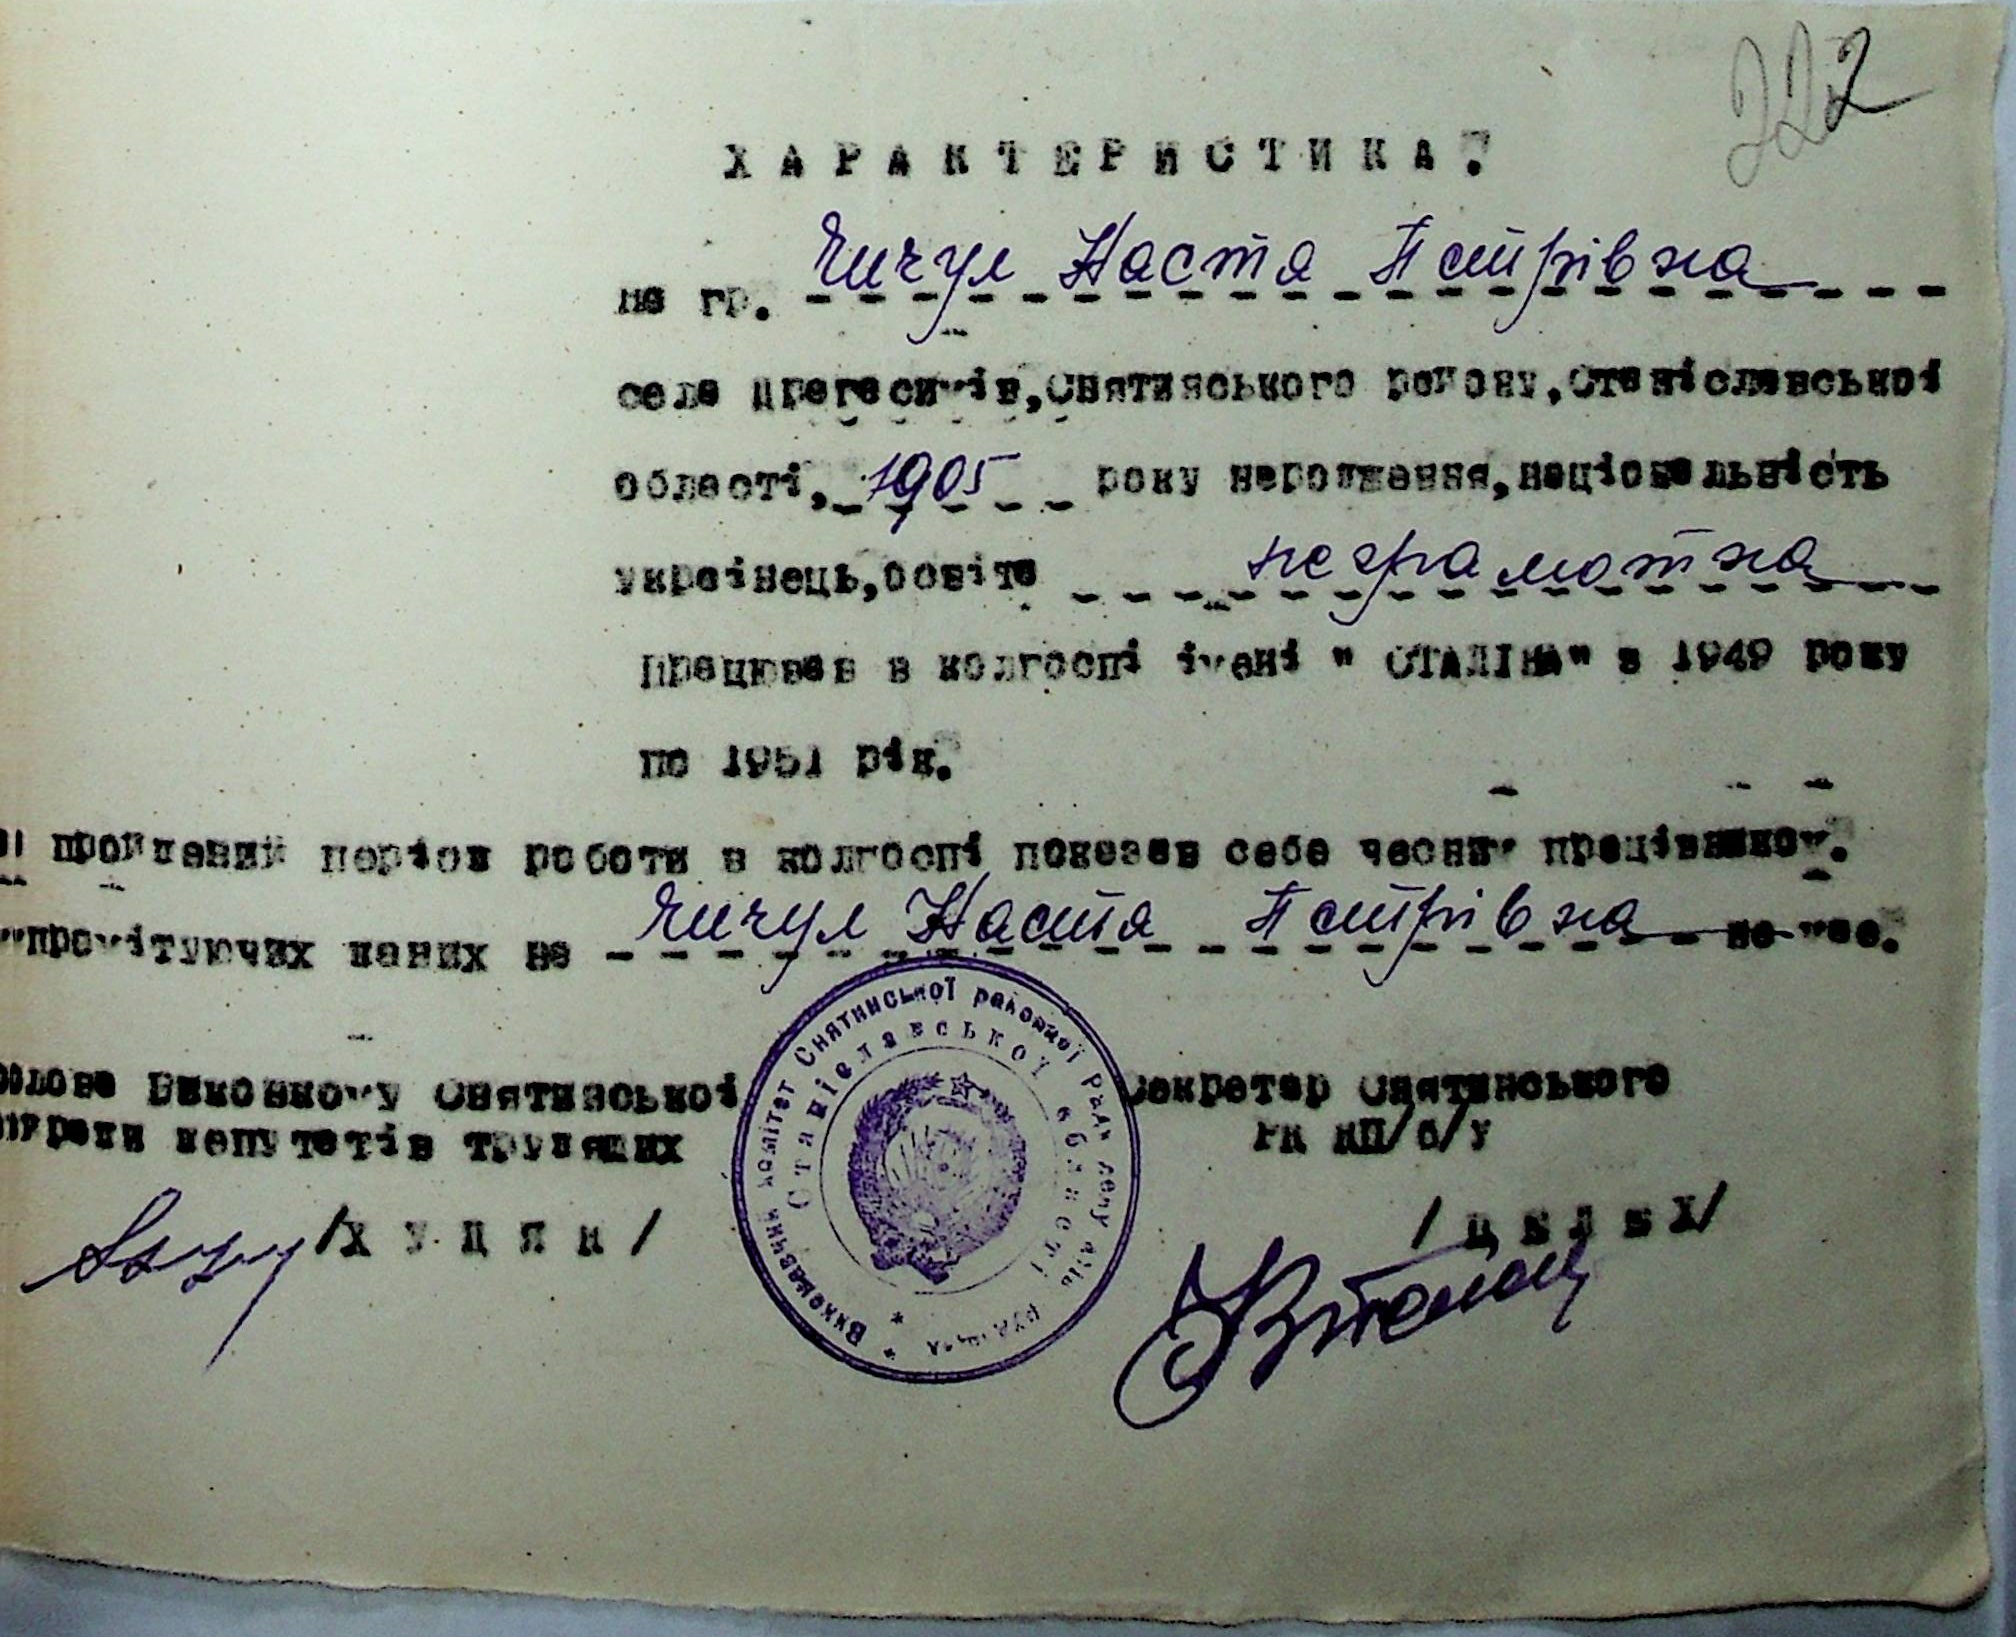 222
ХАРАКТЕРИСТИКА.
на гр. Чичул Настя Петрівна
села Драгасимів, Снятинського району, Станіславської
області, 1905 року народження, національність
українець, освіта неграмотна
Працював в колгоспі імені " СТАЛІНА" з 1949 року
по 1951 рік.
пройдений період роботи в колгоспі показав себе чесним працівником.
компромітуючих даних на Чичул Настя Петрівна не має.
Голова Виконкому Снятинської
райради депутатів трудящих
/Х У Д Я К /
Секретар Снятинського
РК КП/б/У
Виконавчий комітет Снятинської районної Ради депутатів трудящих
Станіславської області